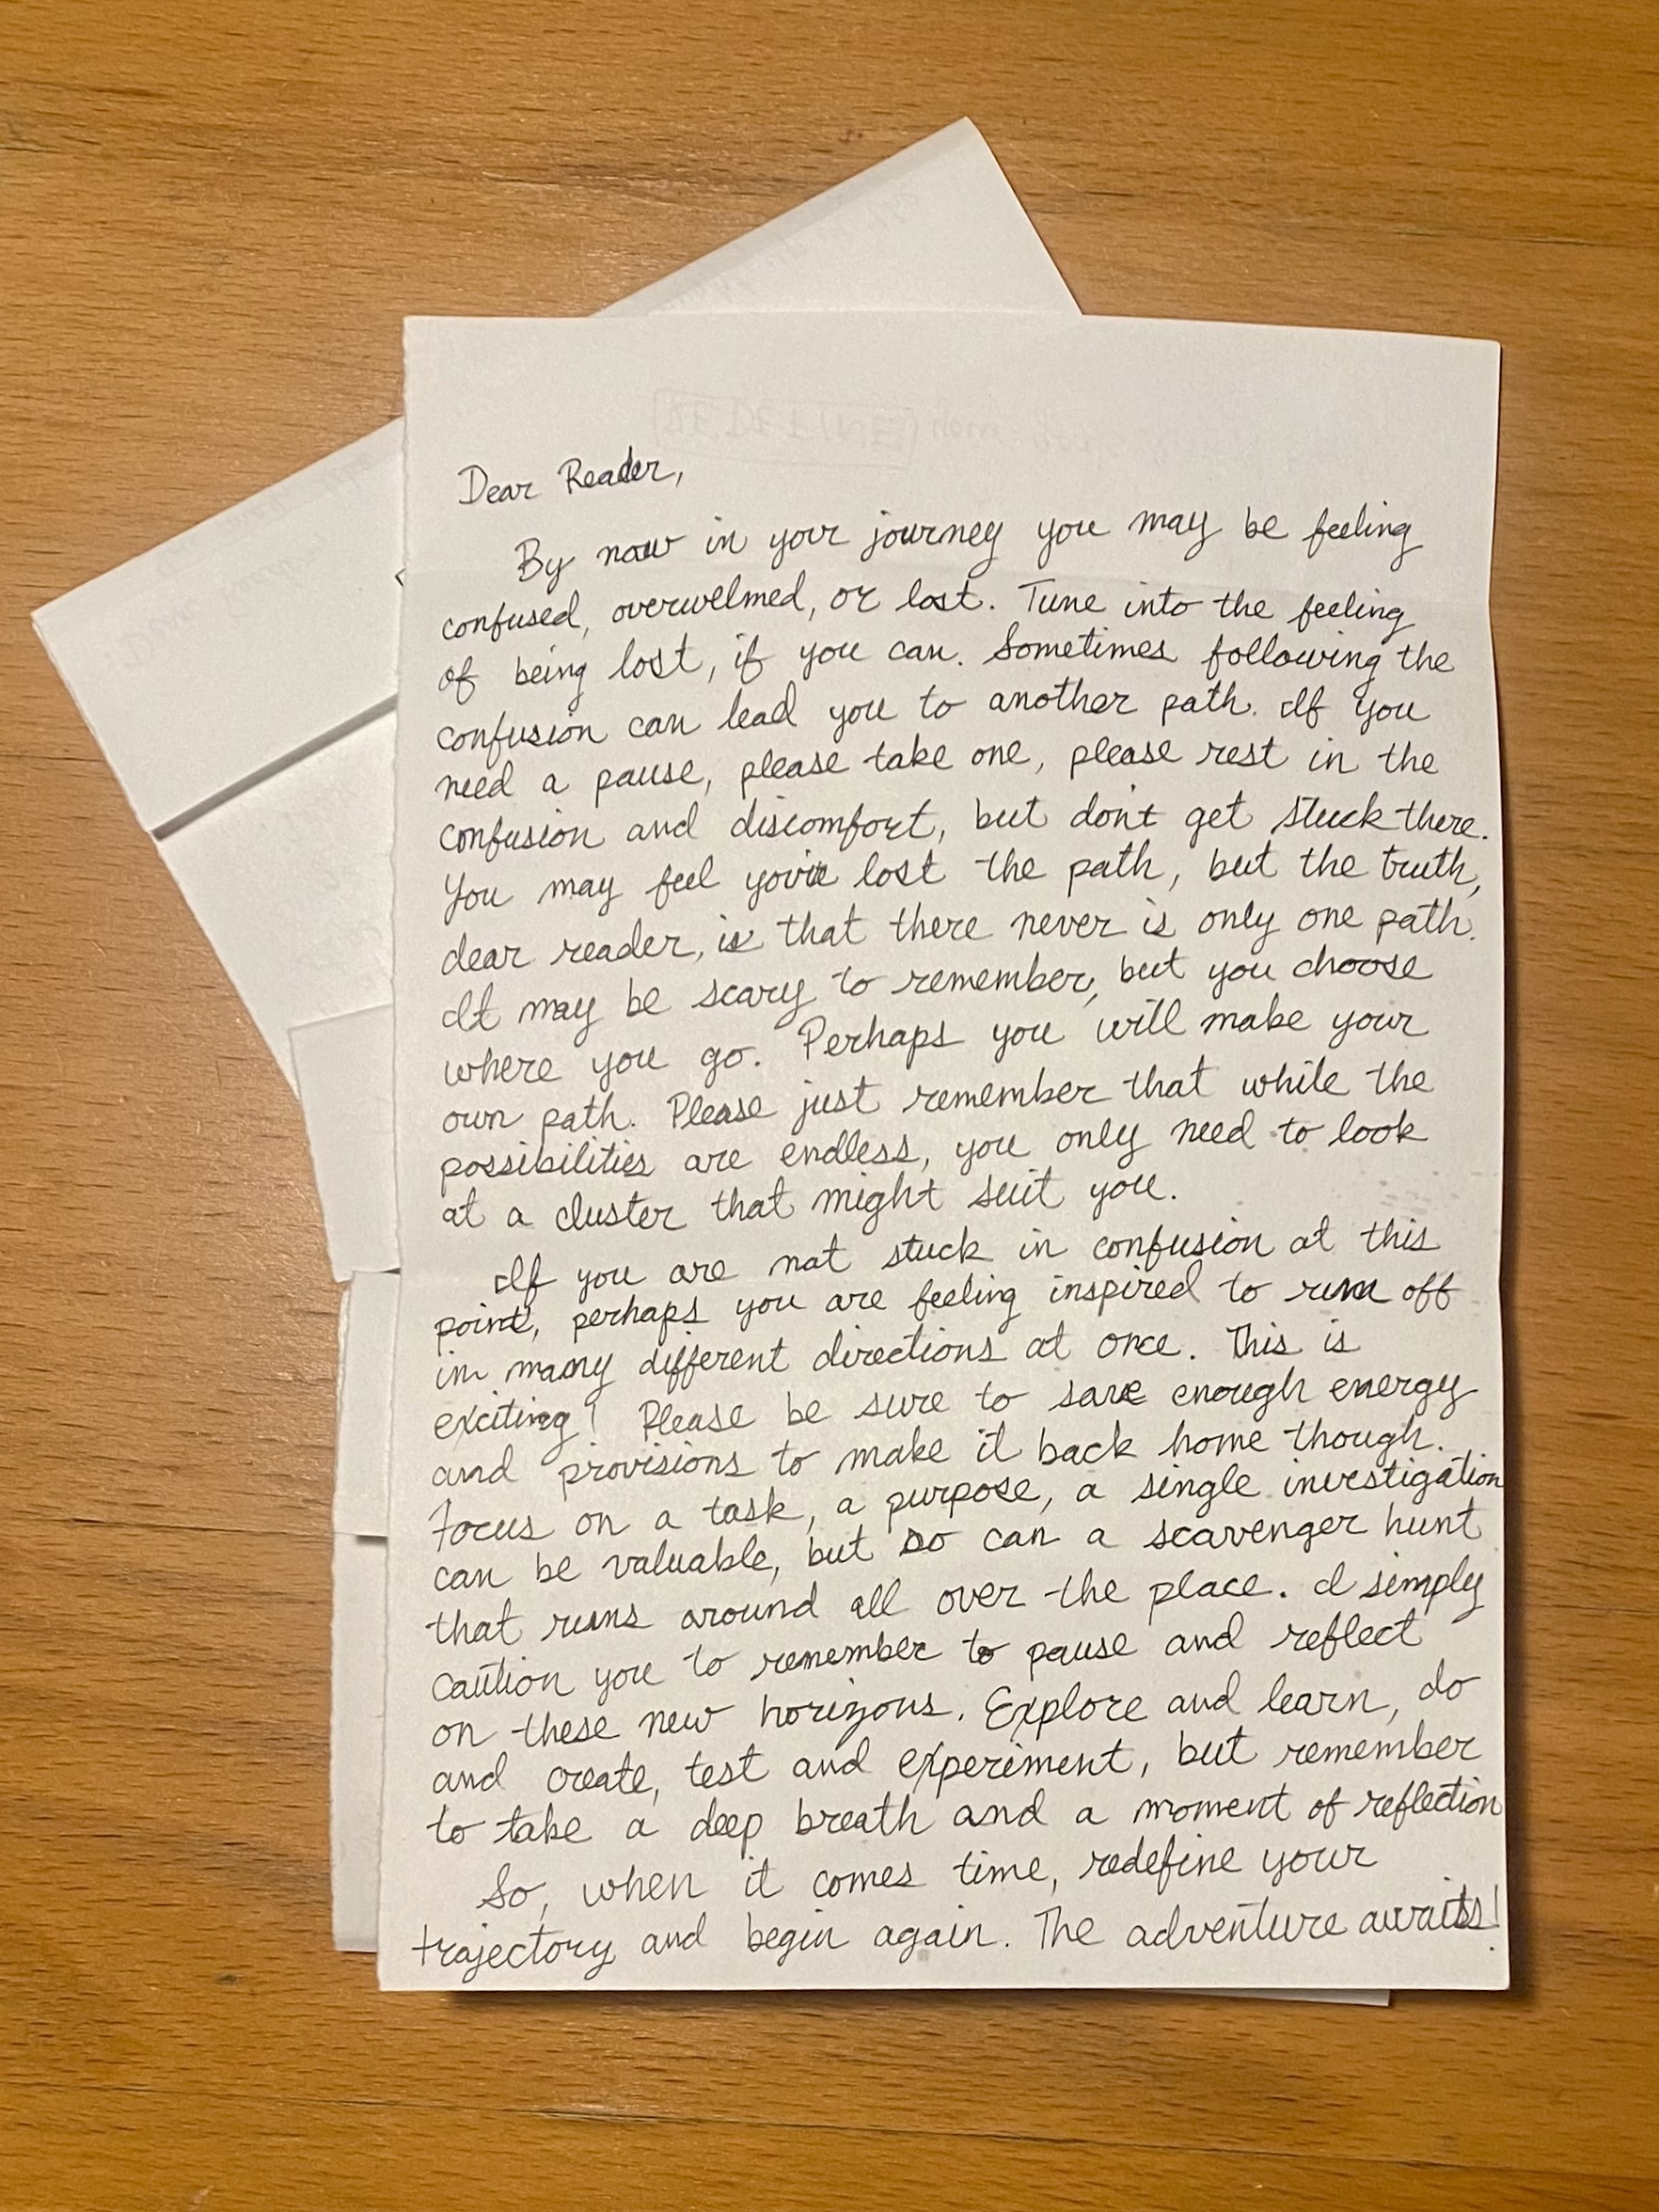 Dear Reader,
By now in your journey you may be feeling
confused, overwelmed, or lost. Tune into the feeling
of being lost, if you can. Sometimes following the
confusion can lead you to another path. If you
need a pause, please take one, please rest in the
confusion and discomfort, but don't get stuck there.
You may feel you've lost the path, but the truth,
dear reader, is that there never is only one path.
It may be scary to remember, but you choose
where you go. Perhaps you will make your
own path. Please just remember that while the
possibilities are endless, you only need to look
at a cluster that might suit you.
If you are not stuck in confusion at this
point, perhaps you are feeling inspired to run off
in many different directions at once. This is
exciting! Please be sure to save enough energy
and provisions to make it back home though.
Focus on a task, a purpose, a single investigation
can be valuable, but so can a scavenger hunt
that runs around all over the place. I simply
caution you to remember to pause and reflect
on these new horizons. Explore and learn, do
and create, test and experiment, but remember
to take a deep breath and a moment of reflection
So, when it comes time, redefine your
trajectory and begin again. The adventure awaits!